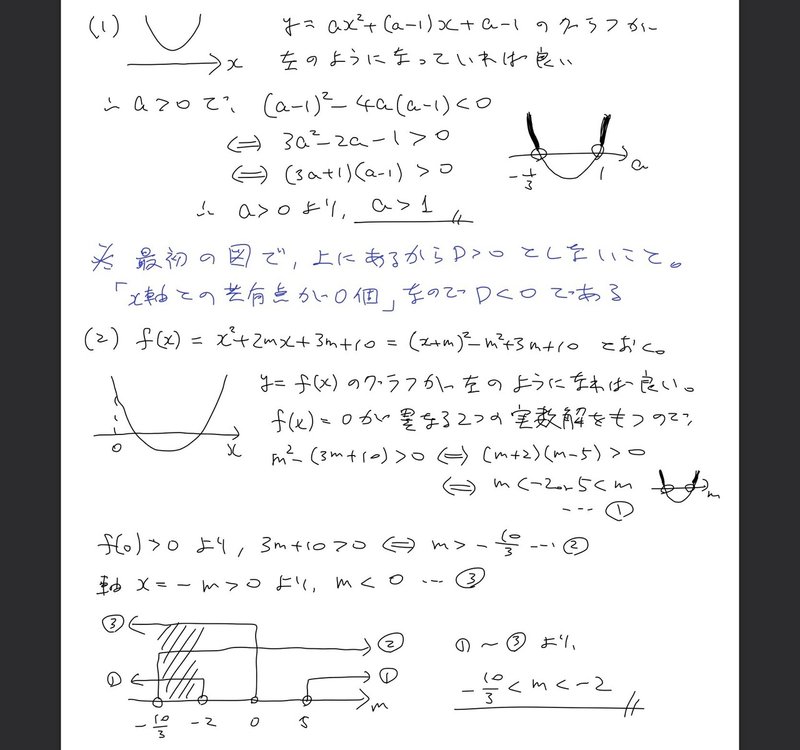 (1)
x
y=ax²+(a-1)x+a-1 のグラフが
左のようになっていれば良い
∴ a>0で、(a-1)²-4a(a-1)<0
⇔ 3a²-2a-1>0
⇔ (3a+1)(a-1)>0
-1/3 1 a
∴ a>0より、a>1
※ 最初の図で、上にあるからD>0としないこと。
「x軸との共有点が0個」なのでD<0である
(2) f(x) = x²+2mx+3m+10 = (x+m)²-m²+3m+10 とおく。
y=f(x)のグラフが左のようになれば良い。
f(x)=0が異なる2つの実数解をもつので、
0 x
m²-(3m+10)>0 ⇔ (m+2)(m-5)>0
⇔ m<-2 or 5<m
m
… ①
f(0)>0 より, 3m+10>0 ⇔ m>-10/3 … ②
軸 x=-m>0 より, m<0 … ③
③
②
① ①
m
-10/3 -2 0 5
①~③より,
-10/3<m<-2